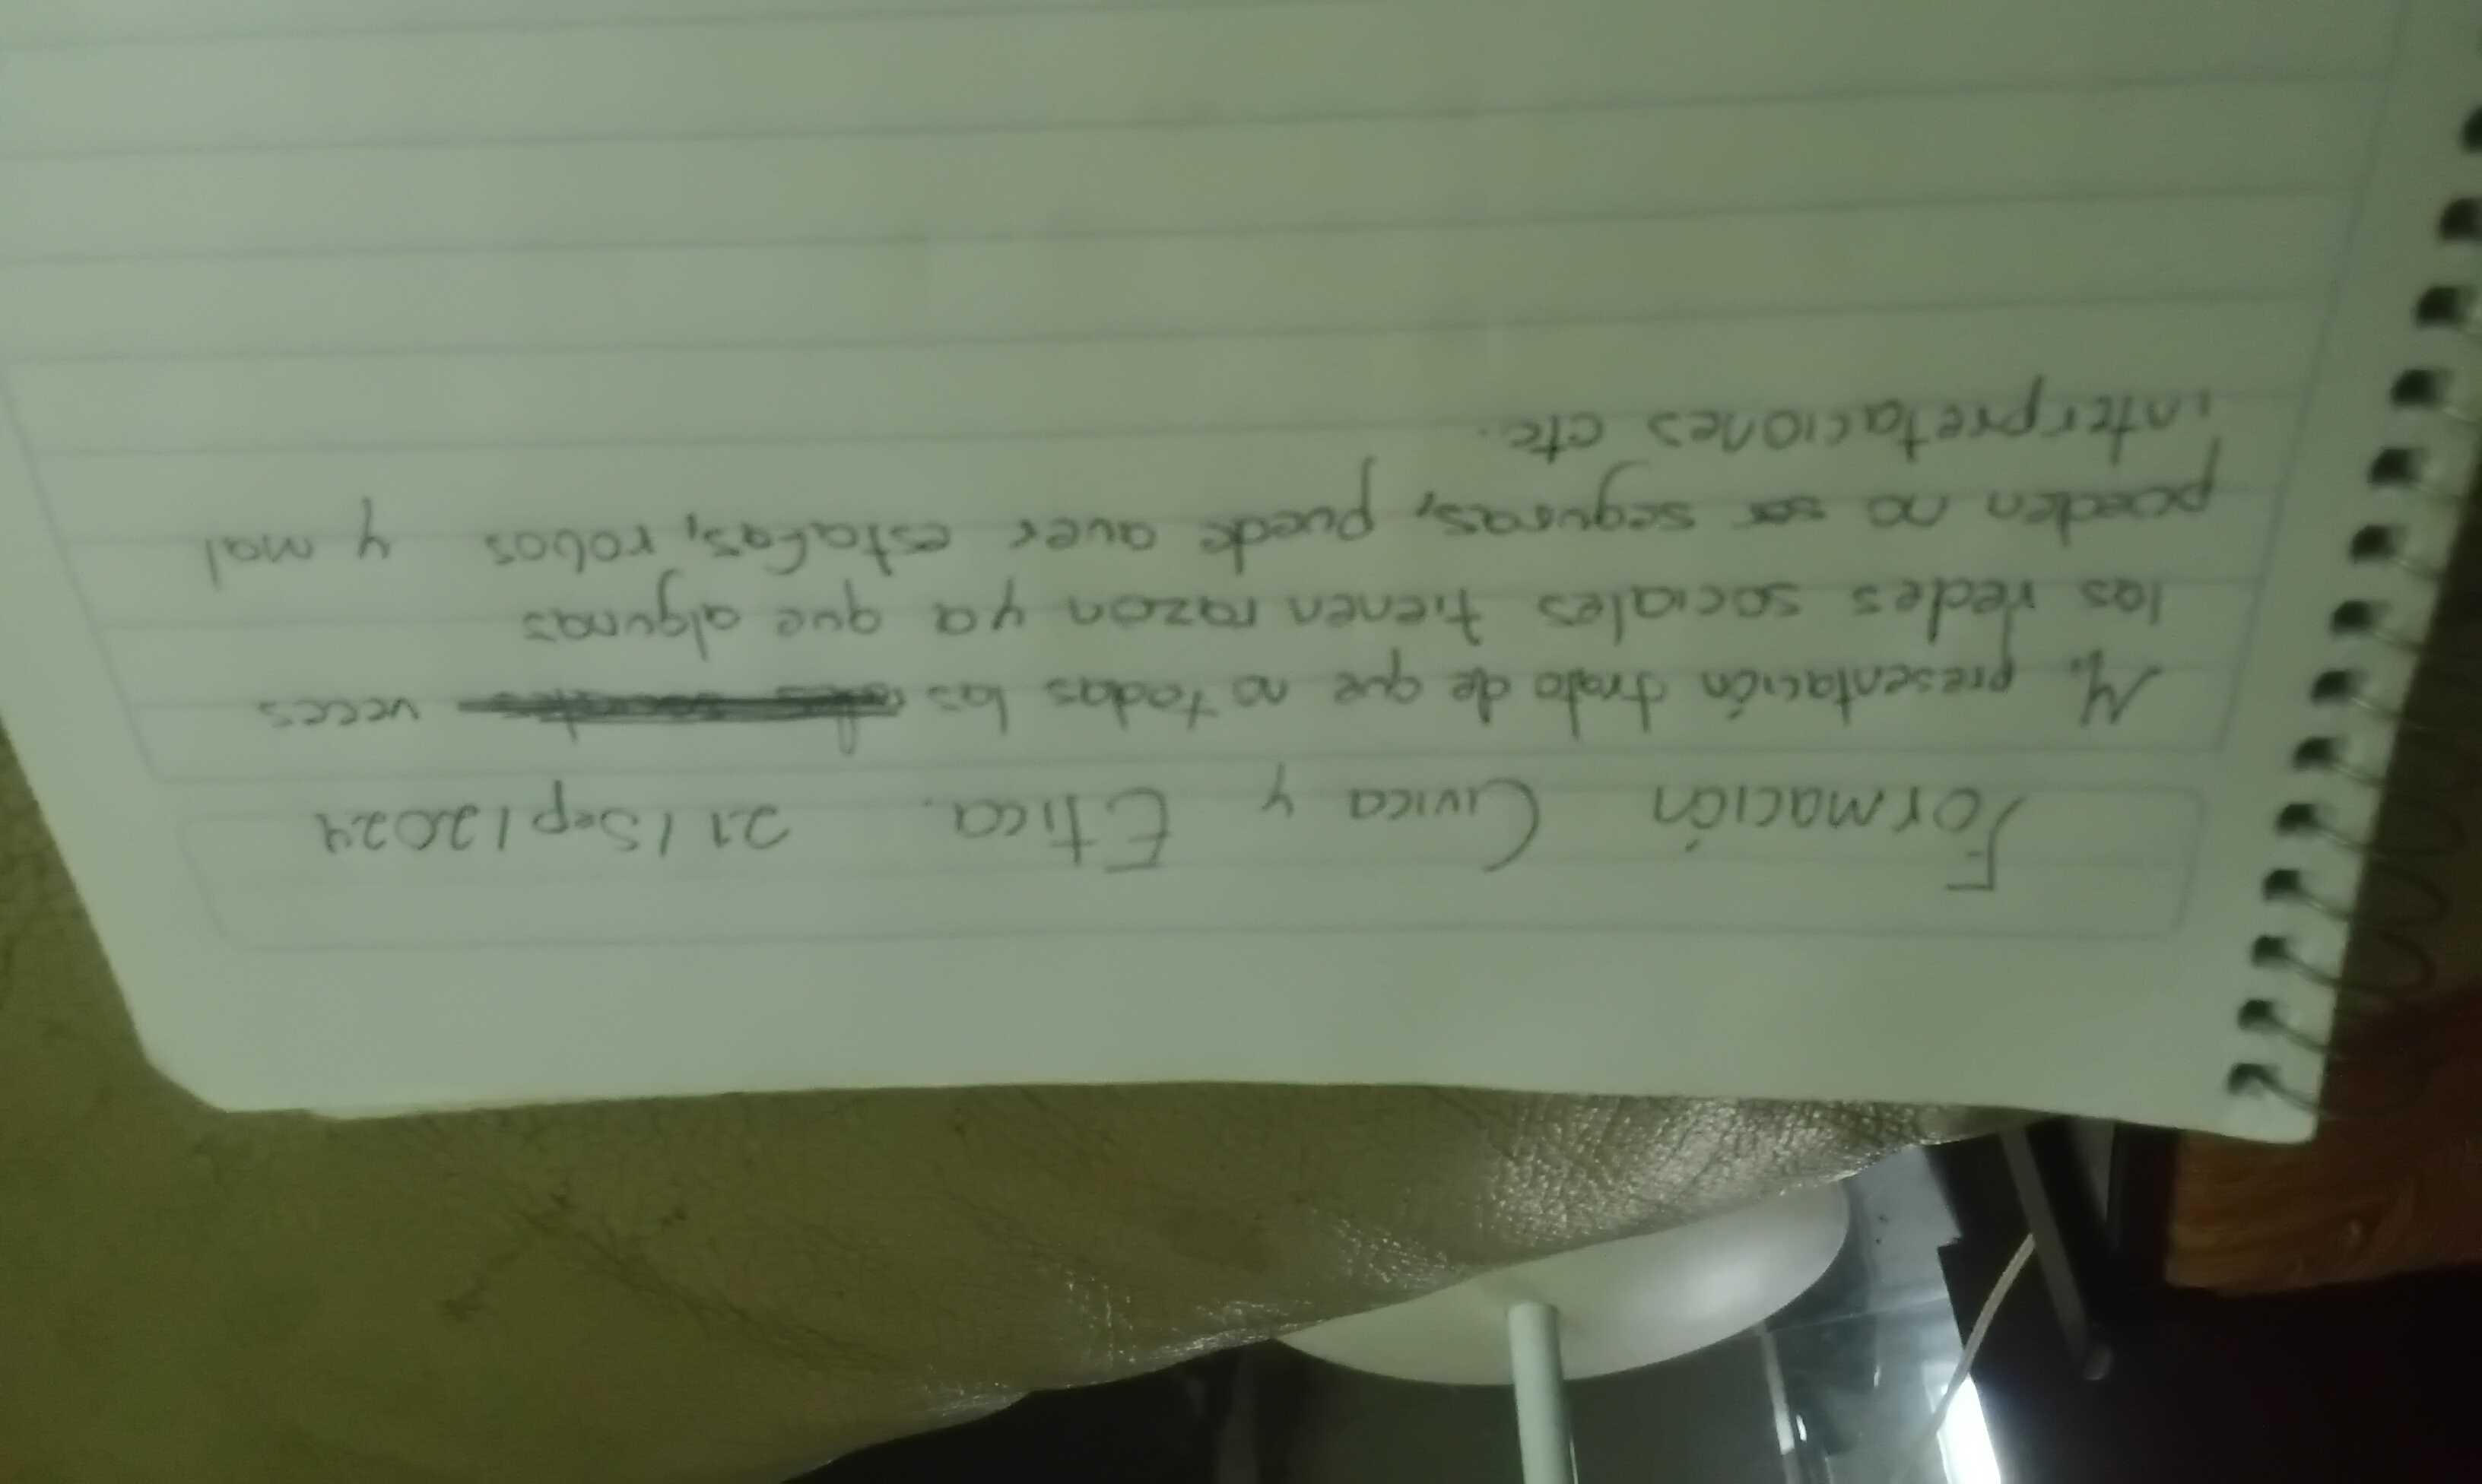 Formación Civica y Etica. 21/Sep/2024
Mi presentación trato de que no todas las veces
las redes sociales tienen razon ya que algunas
pueden no seguras, puede aver estafas, robos y mal
interpretaciones etc.